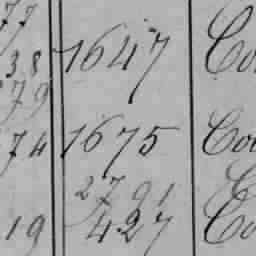 77
38 1647 Co
79
74 1675 Cou
2791
19 427 Co